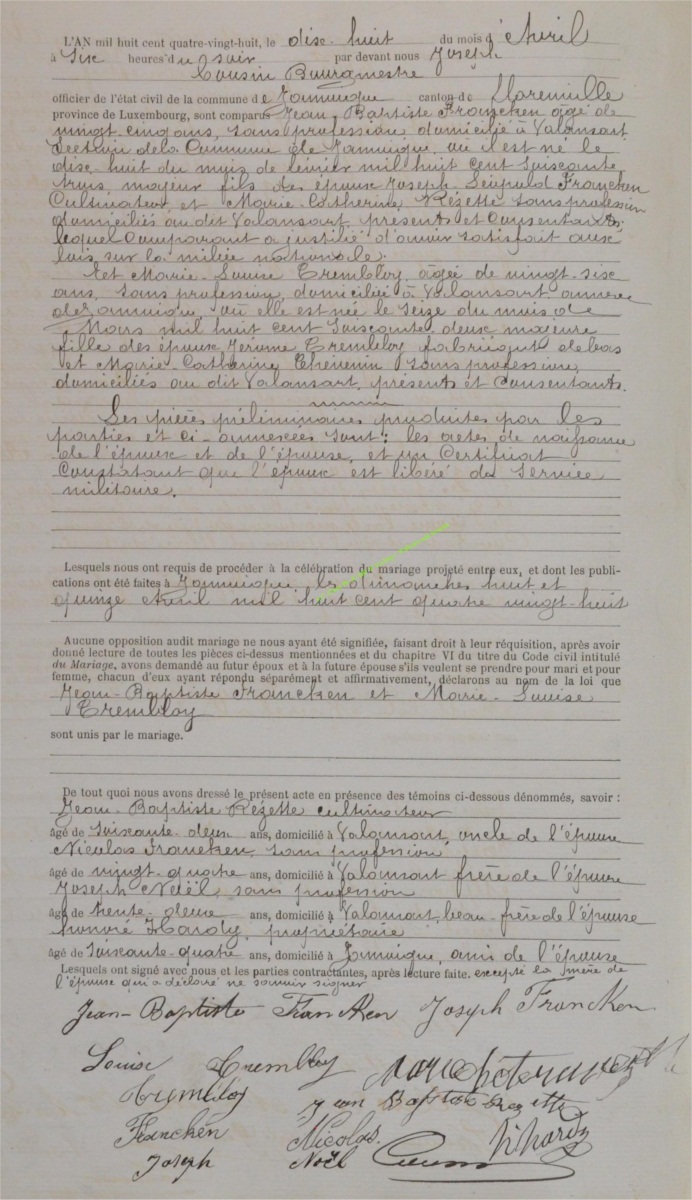 L'AN mil huit cent quatre-vingt-huit, le disc huit du mois d'Avril
à Six heures du soir par devant nous Joseph
Cousin Bourgmestre
officier de l'état civil de la commune de Jamoigne canton de Florenville
province de Luxembourg, sont comparus Jean Baptiste Francken âgé de
vingt-cinq ans, sans profession, domicilié à Valansart
Section de la Commune de Jamoigne, où il est né le
disc huit du mois de février mil huit cent soixante
trois, majeur fils des époux Joseph Léopold Francken
Cultivateur, et Marie-Catherine Rézette sans profession
domiciliés au dit Valansart, présents et Consentants,
lequel Comparant a justifié d'avoir satisfait aux
lois sur la milice nationale;
Et Marie-Louise Trembloy, âgée de vingt-six
ans, sans profession, domiciliée à Valansart annexe
de Jamoigne, où elle est née le Seize du mois de
Mars mil huit cent Soixante-deux majeure
fille des époux Jérôme Trembloy fabricant de bas
et Marie-Catherine Thévenin sans profession,
domiciliés au dit Valansart, présents et Consentants.
Les pièces préliminaires produites par les
parties et ci-annexées sont: les actes de naissance
de l'époux et de l'épouse, et un Certificat
Constatant que l'époux est libéré du Service
militaire.
Lesquels nous ont requis de procéder à la célébration du mariage projeté entre eux, et dont les publi-
cations ont été faites à Jamoigne, les dimanches huit et
quinze Avril mil huit cent quatre vingt-huit
Aucune opposition audit mariage ne nous ayant été signifiée, faisant droit à leur réquisition, après avoir
donné lecture de toutes les pièces ci-dessus mentionnées et du chapitre VI du titre du Code civil intitulé
du Mariage, avons demandé au futur époux et à la future épouse s'ils veulent se prendre pour mari et pour
femme, chacun d'eux ayant répondu séparément et affirmativement, déclarons au nom de la loi que
Jean-Baptiste Francken et Marie-Louise
Trembloy
sont unis par le mariage.
De tout quoi nous avons dressé le présent acte en présence des témoins ci-dessous dénommés, savoir :
Jean-Baptiste Rézette cultivateur
âgé de soixante-deux ans, domicilié à Valansart, oncle de l'époux
Nicolas Francken, sans profession,
âgé de vingt-quatre ans, domicilié à Valansart frère de l'époux
Joseph Noël, sans profession
âgé de trente-deux ans, domicilié à Valansart, beau-frère de l'épouse
honoré Hardy, propriétaire
âgé de soixante-quatre ans, domicilié à Jamoigne, ami de l'épouse
Lesquels ont signé avec nous et les parties contractantes, après lecture faite. excepté la mère de
l'épouse qui a déclaré ne savoir signer
Jean-Baptiste Francken Joseph Francken
Louise Trembloy
Trembloy Jean Baptiste Rezette
Francken Nicolas. h hardy
Joseph Noël Cousin